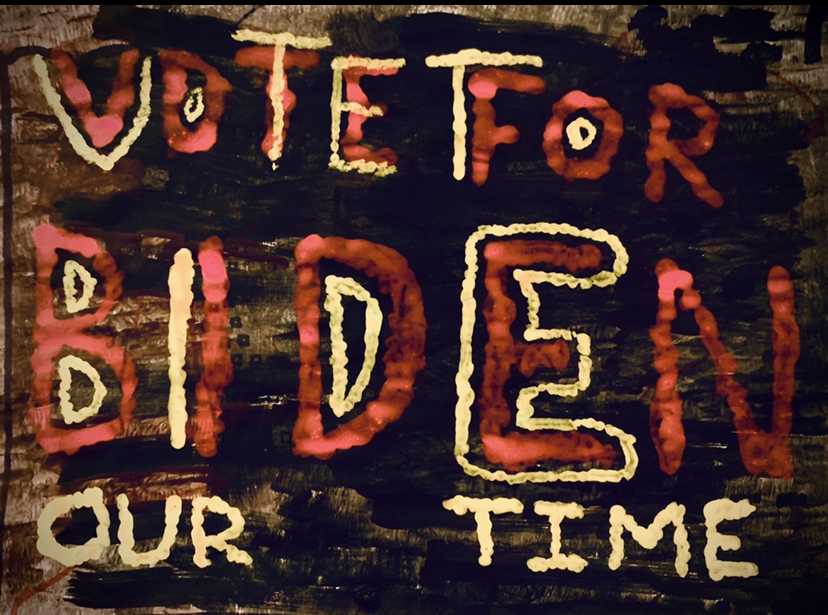 VOTE FOR
BIDEN
OUR TIME